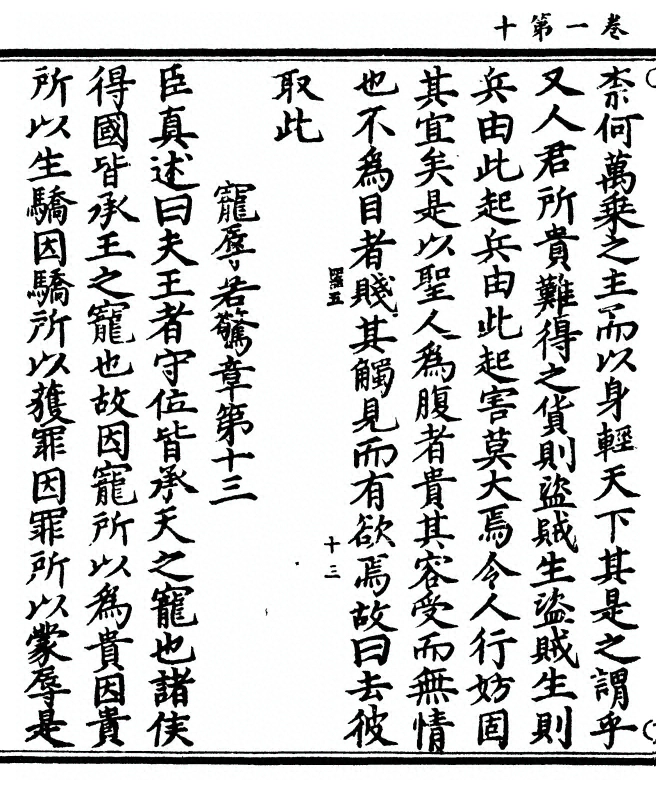 卷一第十
柰何萬乗之主而以身輕天下其是之謂乎
又人君所貴難得之貨則盜賊生盜賊生則
兵由此起兵由此起害莫大焉令人行妨固
其宜矣是以聖人為腹者貴其容受而無情
也不為目者賤其觸見而有欲焉故曰去彼
羅五
十三
取此
寵辱若驚章第十三
臣真述曰夫王者守位皆承天之寵也諸侯
得國皆承王之寵也故因寵所以為貴因貴
所以生驕因驕所以獲罪因罪所以蒙辱是